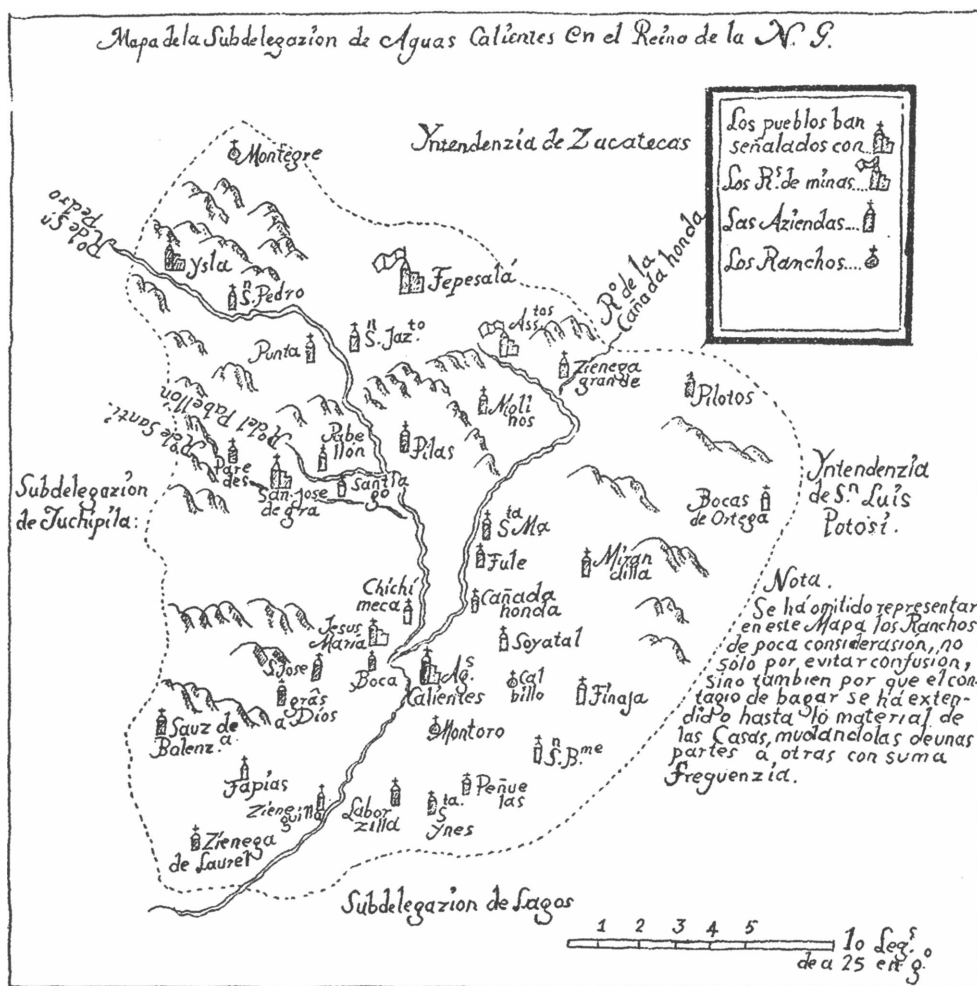 Mapa de la Subdelegazion de Aguas Calientes en el Reino de la N. G.
Yntendenzia de Zacatecas
Los pueblos ban
señalados con...
Los R.s de minas...
Las Aziendas....
Los Ranchos....
Montegre
R.o de S.n
Pedro
Ysla
S.n Pedro
Fepesalá
R.o de la
Cañada honda
Punta
S.n Jaz.to
Ass.tos
Zienega
grande
Pilotos
R.o del Pabellón
R.o de Santi.
Moli
nos
Pabe
llón
Pilas
Pare
des
San Jose
de gra
Santia
go
Subdelegazion
de Juchipila:
Yntendenzia
de S.n Luis
Potosí.
Bocas
de Ortega
S.ta Ma
Fule
Miran
dilla
Chichi
meca
Cañada
honda
Jesus
María
Soyatal
S. Jose
Boca
Ag.s
Calientes
Cal
billo
Finaja
grâs
a Dios
Sauz de
Balenz.a
Montoro
S.n B.me
Fapías
Peñue
las
Ziene
guilla
Labor
zilla
S.ta
Ynes
Zienega
de Laurel
Nota.
Se há omitido representar
en este Mapa los Ranchos
de poca considerasion, no
sólo por evitar confusion,
Sino tambien por que el con-
tagio de bagar se há exten-
dido hasta lo material de
las Casas, mudandolas de unas
partes á otras con suma
freqüenzia.
Subdelegazion de Lagos
1 2 3 4 5 10 Leg.s
de a 25 en g.o